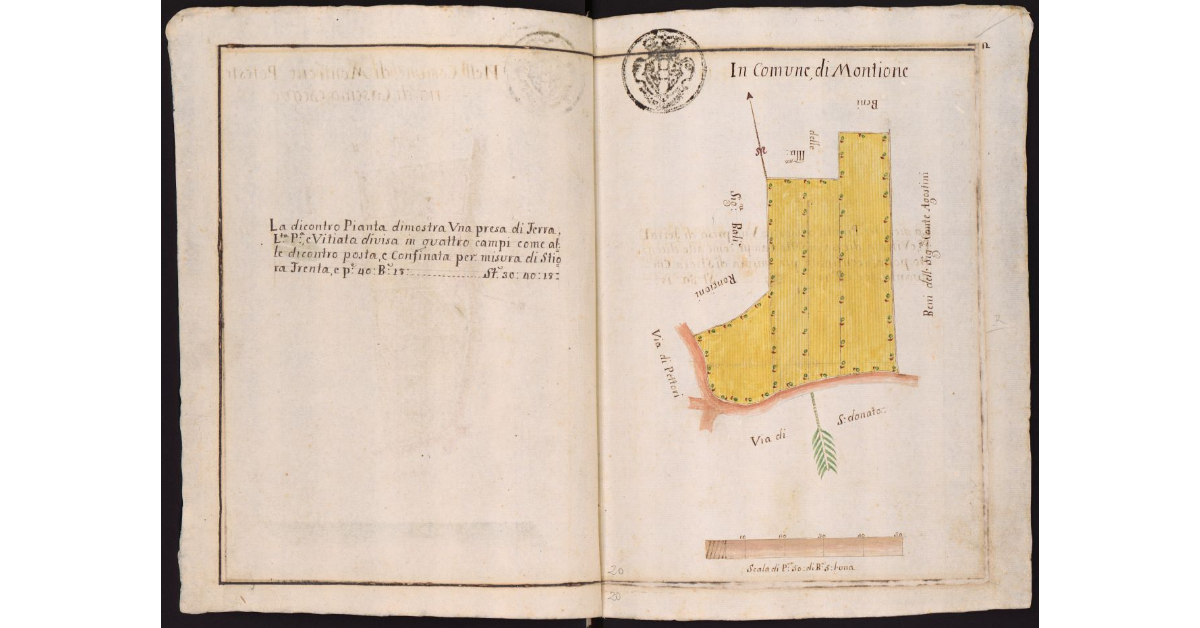 La dicontro Pianta dimostra Vna presa di Terra,
L:ta P:a, e Vitiata divisa in quattro campi come al:
le dicontro posta, e Confinata per misura di Stio
ra Trenta, e p:e 40: B:a 15: St:a 30: 40: 15:
12
In Comune, di Montione
Beni
delle
Ill:me
Sig:re
Bali
Ronsioni
Beni dell: Sig: Conte Agostini
Via di Pettori
Via di S: donato:
10 20 30 40 50
Scala di P:e 50: di B:a 5: l'una
20
20